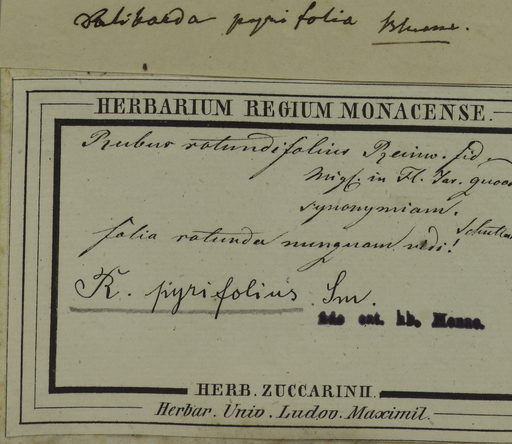 Dalibarda pyrifolia Blume.
HERBARIUM REGIUM MONACENSE.
Rubus rotundifolius Reinw. fid.
Miq. in Fl. Jav. quoad
synonymiam.
folia rotunda nunquam vidi!
R. pyrifolius Sm.
fde cat. hb. Monac.
HERB. ZUCCARINII.
Herbar. Univ. Ludov. Maximil.